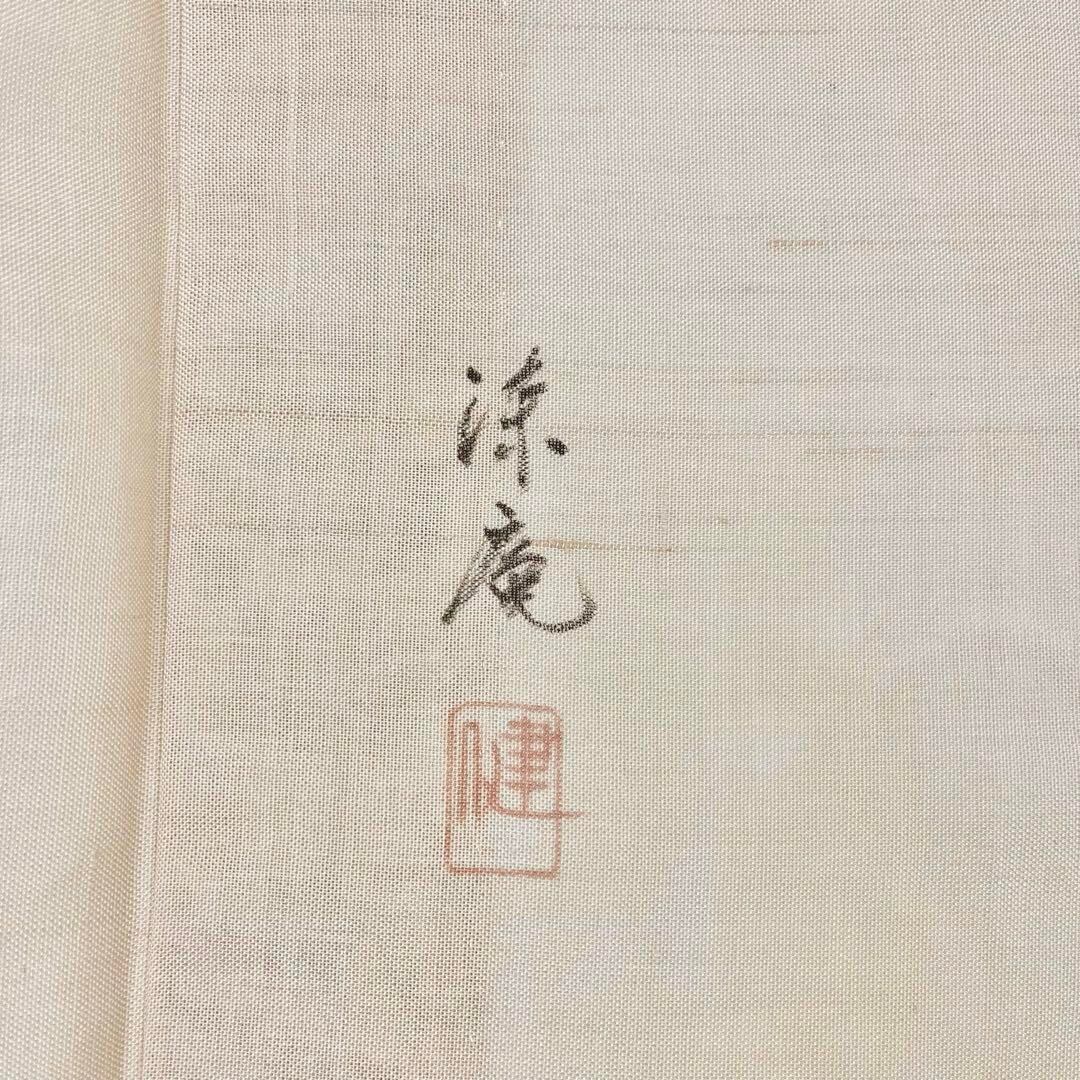 涼庵
健